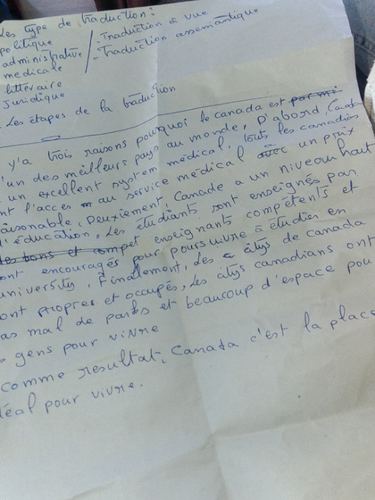 Les type de traduction:
politique
administrative
medicale
littéraire
juridique
-Traduction à vue
-Traduction assemantique
Les étapes de la traduction
y'a trois raisons pourquoi le canada est
un des meilleurs pays au monde, D'abord,
un excellent system médical. tous les canadies
nt l'acces au service medical avec un prix
aisonable. Deuxiement, Canade a un niveau haut
d'éducation, Les étudiants sont enseignés par
enseignants compétents et
ont encouragés pour poursuivre à étudies en
university, Finallement, Les citys de canada
ont propres et occupés, Les citys canadians ont
as mal de parks et beaucoup d'espace pou
s gens pour vivre
comme resultat, Canada c'est la place
déal pour vivre.